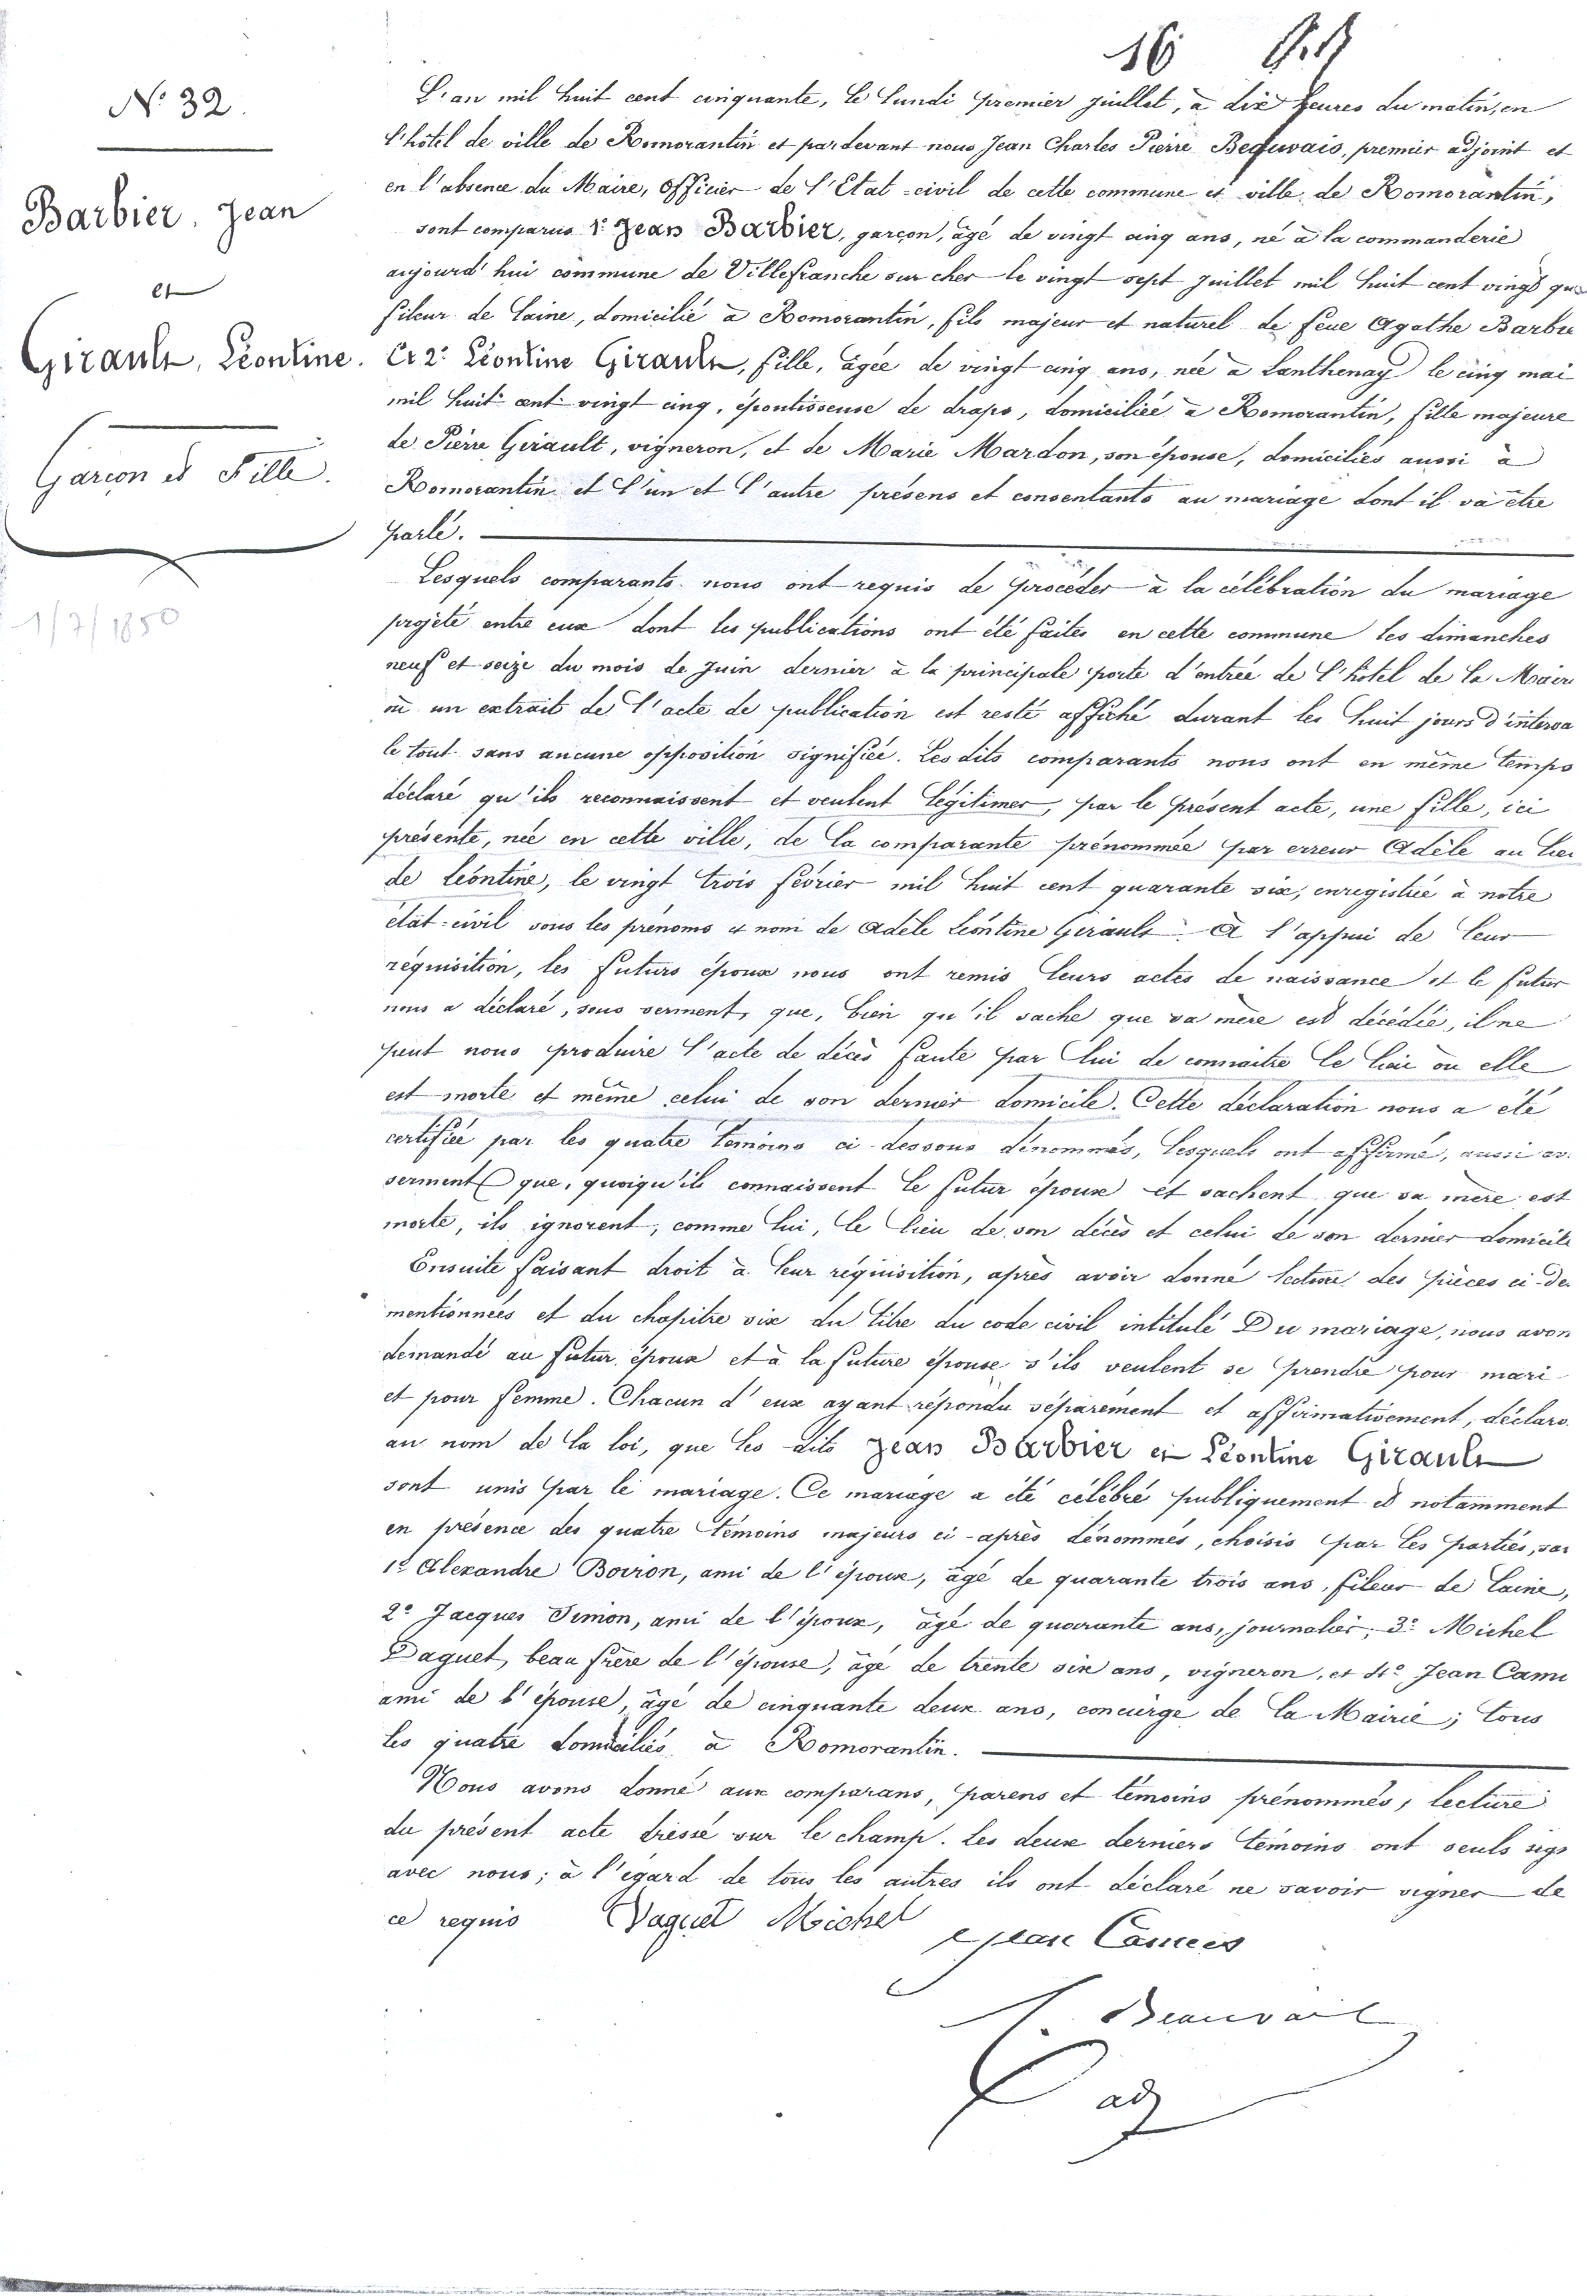 16
N° 32.
Barbier, Jean
et
Girault, Léontine.
Garçon et Fille.
1/7/1850
L'an mil huit cent cinquante, le lundi premier juillet, à dix heures du matin, en
l'hôtel de ville de Romorantin et pardevant nous Jean Charles Pierre Beauvais, premier adjoint et
en l'absence du Maire, officier de l'Etat-civil de cette commune et ville de Romorantin,
sont comparus 1° Jean Barbier, garçon, âgé de vingt cinq ans, né à la commanderie
aujourd'hui commune de Villefranche sur cher le vingt sept juillet mil huit cent vingt qua
fileur de laine, domicilié à Romorantin, fils majeur et naturel de feue Agathe Barbie
Et 2° Léontine Girault, fille, âgée de vingt cinq ans, née à Lanthenay le cinq mai
mil huit cent vingt cinq, épontisseuse de draps, domiciliée à Romorantin, fille majeure
de Pierre Girault, vigneron, et de Marie Mardon, son épouse, domiciliés aussi à
Romorantin et l'un et l'autre présens et consentants au mariage dont il va être
parlé.
Lesquels comparants nous ont requis de procéder à la célébration du mariage
projeté entre eux dont les publications ont été faites en cette commune les dimanches
neuf et seize du mois de Juin dernier à la principale porte d'entrée de l'hôtel de la Mairi
où un extrait de l'acte de publication est resté affiché durant les huit jours d'interva
le tout sans aucune opposition signifiée. Les dits comparants nous ont en même temps
déclaré qu'ils reconnaissent et veulent légitimer, par le présent acte, une fille, ici
présente, née en cette ville, de la comparante prénommée par erreur Adèle au lieu
de Léontine, le vingt trois février mil huit cent quarante six, enregistrée à notre
état-civil sous les prénoms et nom de Adèle Léontine Girault. À l'appui de leur
réquisition, les futurs époux nous ont remis leurs actes de naissance et le futur
nous a déclaré, sous serment, que, bien qu'il sache que sa mère est décédée, il ne
peut nous produire l'acte de décès faute par lui de connaitre le lieu où elle
est morte et même celui de son dernier domicile. Cette déclaration nous a été
certifiée par les quatre témoins ci-dessous dénommés, lesquels ont affirmé, aussi av
serment que, quoiqu'ils connaissent le futur époux et sachent que sa mère est
morte, ils ignorent, comme lui, le lieu de son décès et celui de son dernier domicile
Ensuite faisant droit à leur réquisition, après avoir donné lecture des pièces ci-de
mentionnées et du chapitre six du titre du code civil intitulé Du mariage, nous avon
demandé au futur époux et à la future épouse s'ils veulent se prendre pour mari
et pour femme. Chacun d'eux ayant répondu séparément et affirmativement, déclaro
au nom de la loi, que les dits Jean Barbier et Léontine Girault
sont unis par le mariage. Ce mariage a été célébré publiquement et notamment
en présence des quatre témoins majeurs ci-après dénommés, choisis par les parties, sav
1° Alexandre Boiron, ami de l'époux, âgé de quarante trois ans, fileur de laine,
2° Jacques Simon, ami de l'époux, âgé de quarante ans, journalier; 3° Michel
Daguet, beau frère de l'épouse, âgé de trente six ans, vigneron, et 4° Jean Cami
ami de l'épouse, âgé de cinquante deux ans, concierge de la Mairie; tous
les quatre domiciliés à Romorantin.
Nous avons donné aux comparans, parens et témoins prénommés, lecture
du présent acte dressé sur le champ. Les deux derniers témoins ont seuls sign
avec nous; à l'égard de tous les autres ils ont déclaré ne savoir signer de
ce requis Daguet Michel
Jean Camus
Beauvais
adj